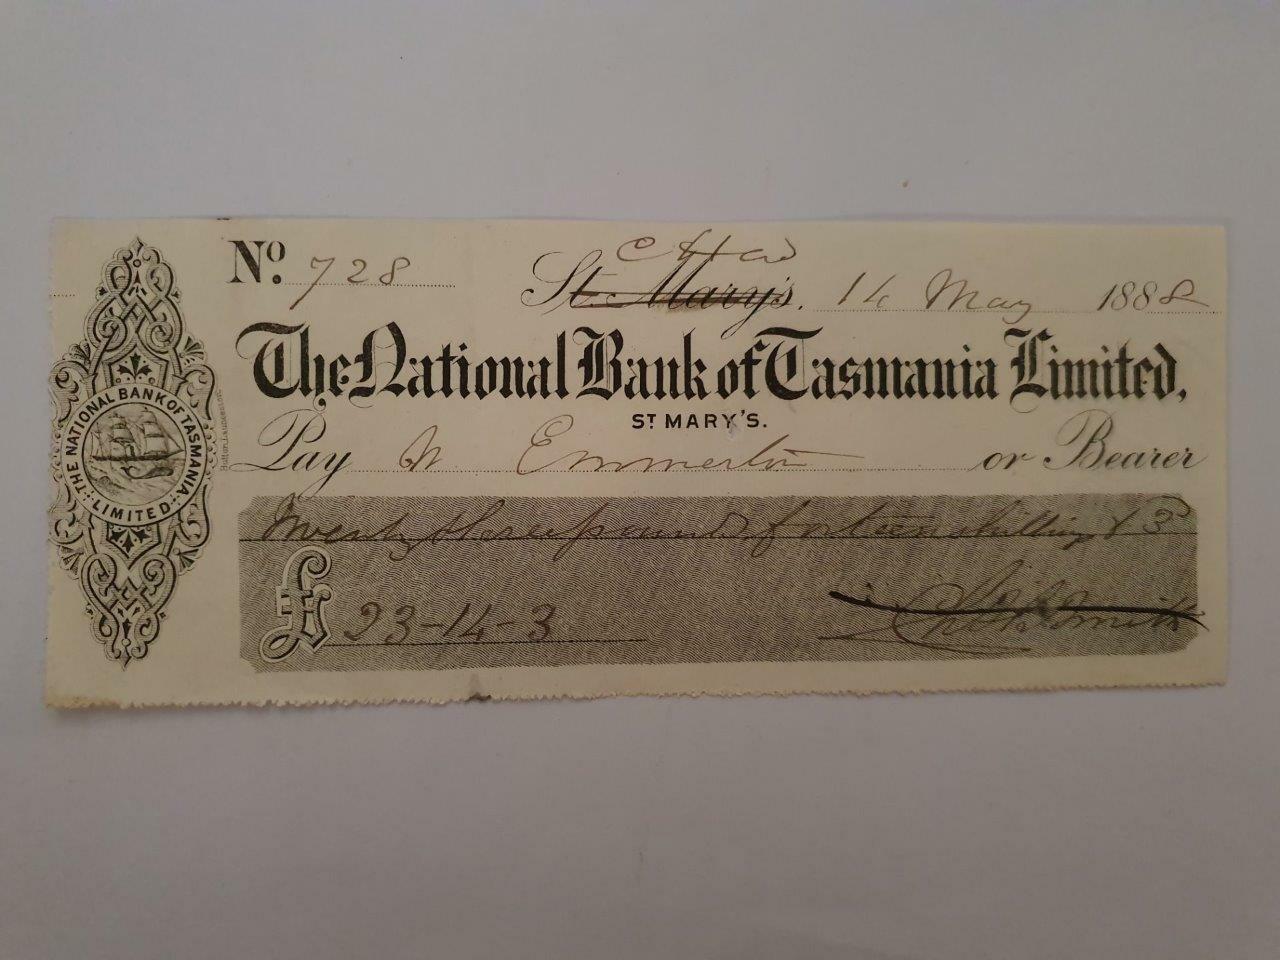 THE NATIONAL BANK OF TASMANIA
LIMITED
No. 728
St. Mary's. 14 May 1888
The National Bank of Tasmania Limited.
ST MARY'S.
Pay W. Emmerton or Bearer
Twenty three pounds forteen shillings & 3d
£ 23-14-3
Smith